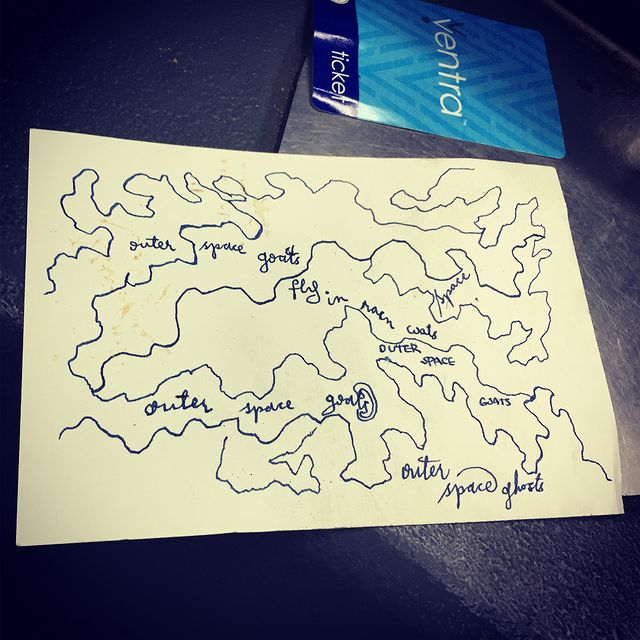 ventra
ticket
outer space goats
fly in
space
OUTER
SPACE
outer space goats
GOATS
outer
space ghosts